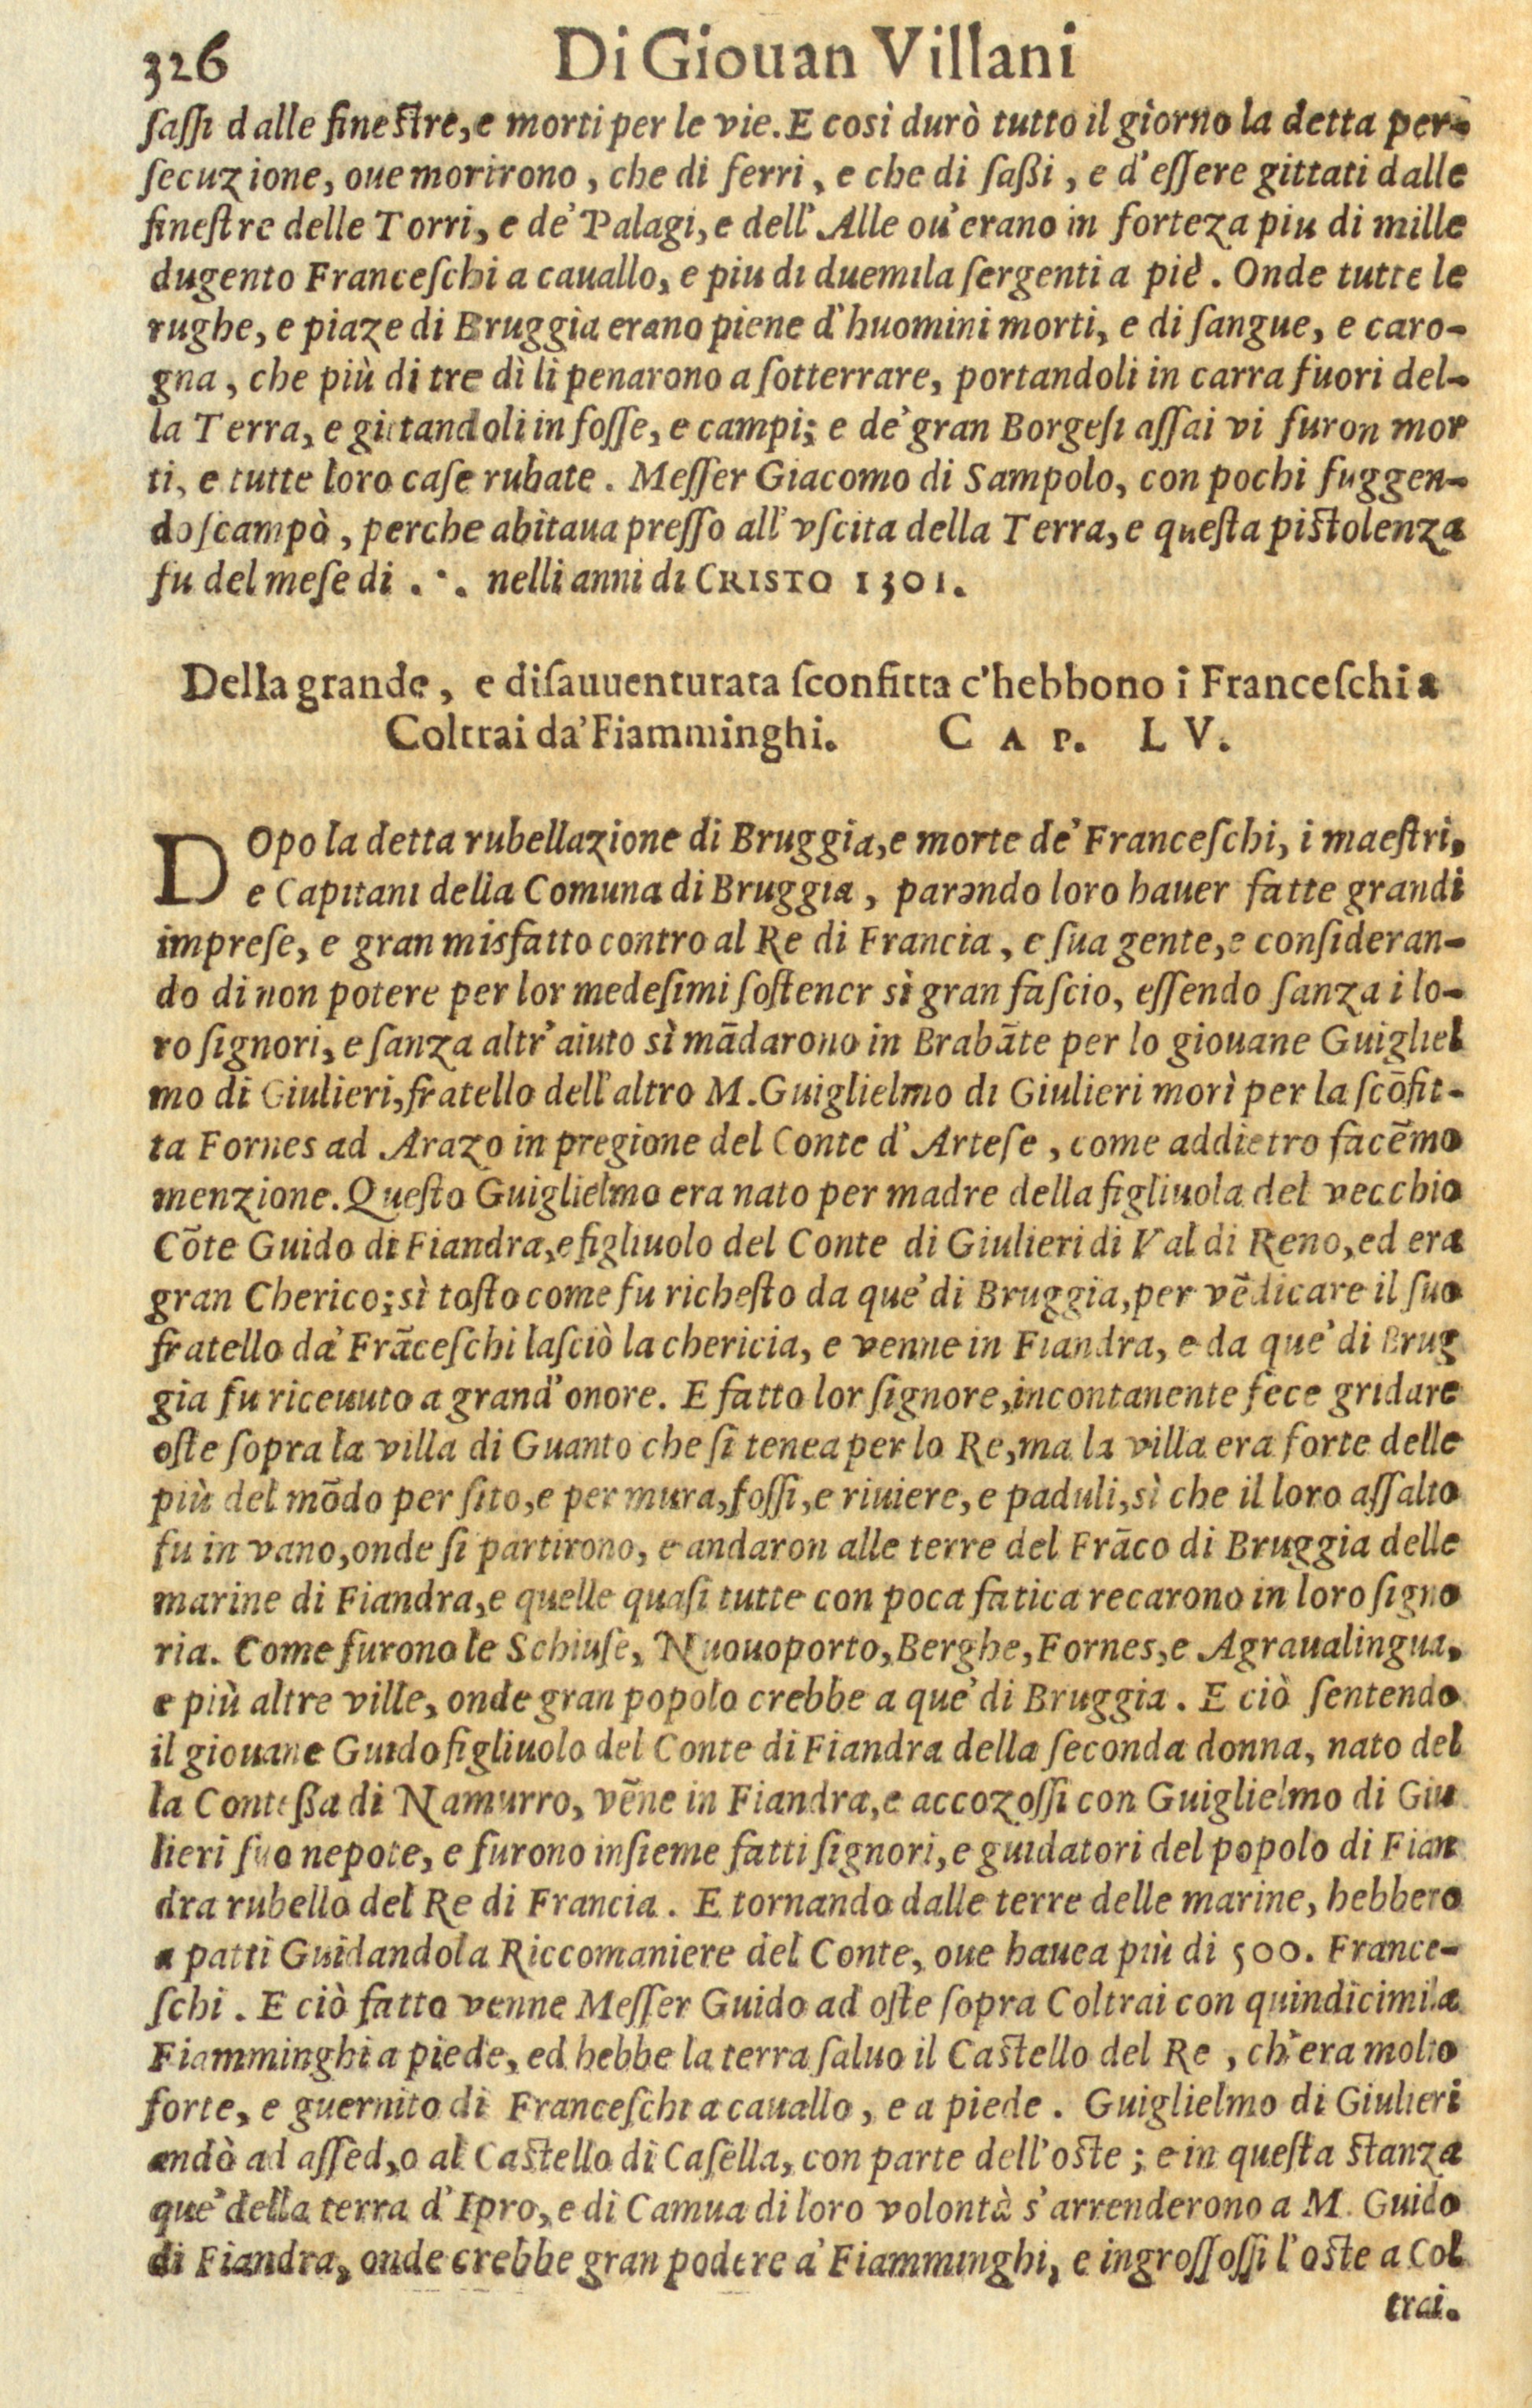 326 Di Giouan Villani
ſaſſi dalle fineſtre, e morti per le vie. E così durò tutto il giorno la detta per-
ſecuzione, oue morirono, che di ferri, e che di ſaßi, e d'eſſere gittati dalle
fineſtre delle Torri, e de' Palagi, e dell' Alle ou'erano in forteza piu di mille
dugento Franceſchi a cauallo, e piu di duemila ſergenti a piè. Onde tutte le
rughe, e piaze di Bruggia erano piene d'huomini morti, e di ſangue, e caro-
gna, che più di tre dì li penarono a ſotterrare, portandoli in carra fuori del-
la Terra, e gittandoli in foſſe, e campi; e de' gran Borgeſi aſſai vi furon mor
ti, e tutte loro caſe rubate. Meſſer Giacomo di Sampolo, con pochi fuggen-
do ſcampò, perche abitaua preſſo all'vſcita della Terra, e queſta piſtolenza
fu del meſe di . · . nelli anni di CRISTO 1301.
Della grande, e diſauuenturata ſconfitta c'hebbono i Franceſchi a
Coltrai da' Fiamminghi. CAP. LV.
DOpo la detta rubellazione di Bruggia, e morte de' Franceſchi, i maeſtri,
e Capitani della Comuna di Bruggia, parendo loro hauer fatte grandi
impreſe, e gran misfatto contro al Re di Francia, e ſua gente, e conſideran-
do di non potere per lor medeſimi ſoſtener sì gran faſcio, eſſendo ſanza i lo-
ro ſignori, e ſanza altr'aiuto sì mãdarono in Brabãte per lo giouane Guigliel
mo di Giulieri, fratello dell'altro M. Guiglielmo di Giulieri morì per la ſcõfit-
ta Fornes ad Arazo in pregione del Conte d'Arteſe, come addietro facẽmo
menzione. Queſto Guiglielmo era nato per madre della figliuola del vecchio
Cõte Guido di Fiandra, e figliuolo del Conte di Giulieri di Val di Reno, ed era
gran Cherico; sì toſto come fu richeſto da que' di Bruggia, per vẽdicare il ſuo
fratello da' Frãceſchi laſciò la chericia, e venne in Fiandra, e da que' di Brug
gia fu riceuuto a grand'onore. E fatto lor ſignore, incontanente fece gridare
oſte ſopra la villa di Guanto che ſi tenea per lo Re, ma la villa era forte delle
più del mõdo per ſito, e per mura, foſſi, e riuiere, e paduli, sì che il loro aſſalto
fu in vano, onde ſi partirono, e andaron alle terre del Frãco di Bruggia delle
marine di Fiandra, e quelle quaſi tutte con poca fatica recarono in loro ſigno
ria. Come furono le Schiuſe, Nuouoporto, Berghe, Fornes, e Agraualingua,
e più altre ville, onde gran popolo crebbe a que' di Bruggia. E ciò ſentendo
il giouane Guido figliuolo del Conte di Fiandra della ſeconda donna, nato del
la Conteßa di Namurro, vẽne in Fiandra, e accozoſſi con Guiglielmo di Giu
lieri ſuo nepote, e furono inſieme fatti ſignori, e guidatori del popolo di Fian
dra rubello del Re di Francia. E tornando dalle terre delle marine, hebbero
a patti Guidandola Riccomaniere del Conte, oue hauea più di 500. France-
ſchi. E ciò fatto venne Meſſer Guido ad oſte ſopra Coltrai con quindicimila
Fiamminghi a piede, ed hebbe la terra ſaluo il Caſtello del Re, ch'era molto
forte, e guernito di Franceſchi a cauallo, e a piede. Guiglielmo di Giulieri
andò ad aſſedio al Caſtello di Caſella, con parte dell'oſte; e in queſta ſtanza
que' della terra d'Ipro, e di Camua di loro volontà s'arrenderono a M. Guido
di Fiandra, onde crebbe gran podere a' Fiamminghi, e ingroſſoſſi l'oſte a Col
trai.